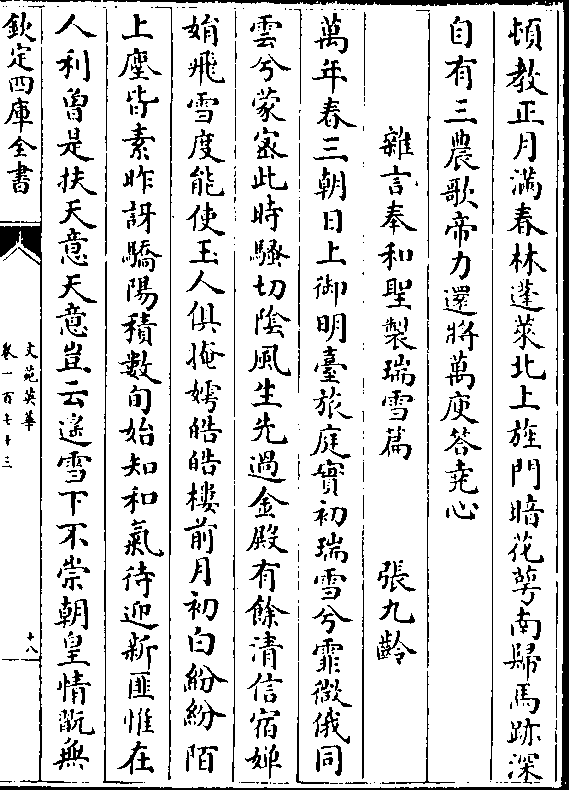 頓教正月滿春林蓬萊北上旌門暗花萼南歸馬跡深
自有三農歌帝力還將萬庾答堯心
雜言奉和聖製瑞雪篇　張九齡
萬年春三朝日上御明臺旅庭實初瑞雪兮霏微俄同
雲兮蒙密此時騷切陰風生先過金殿有餘清信宿嬋
娟飛雪度能使玉人俱掩嫮皓皓樓前月初白紛紛陌
上塵皆素昨訝驕陽積數旬始知和氣待迎新匪惟在
人利曾是扶天意天意豈云遙雪下不崇朝皇情翫無
欽定四庫全書
文苑英華
卷一百七十三
十八